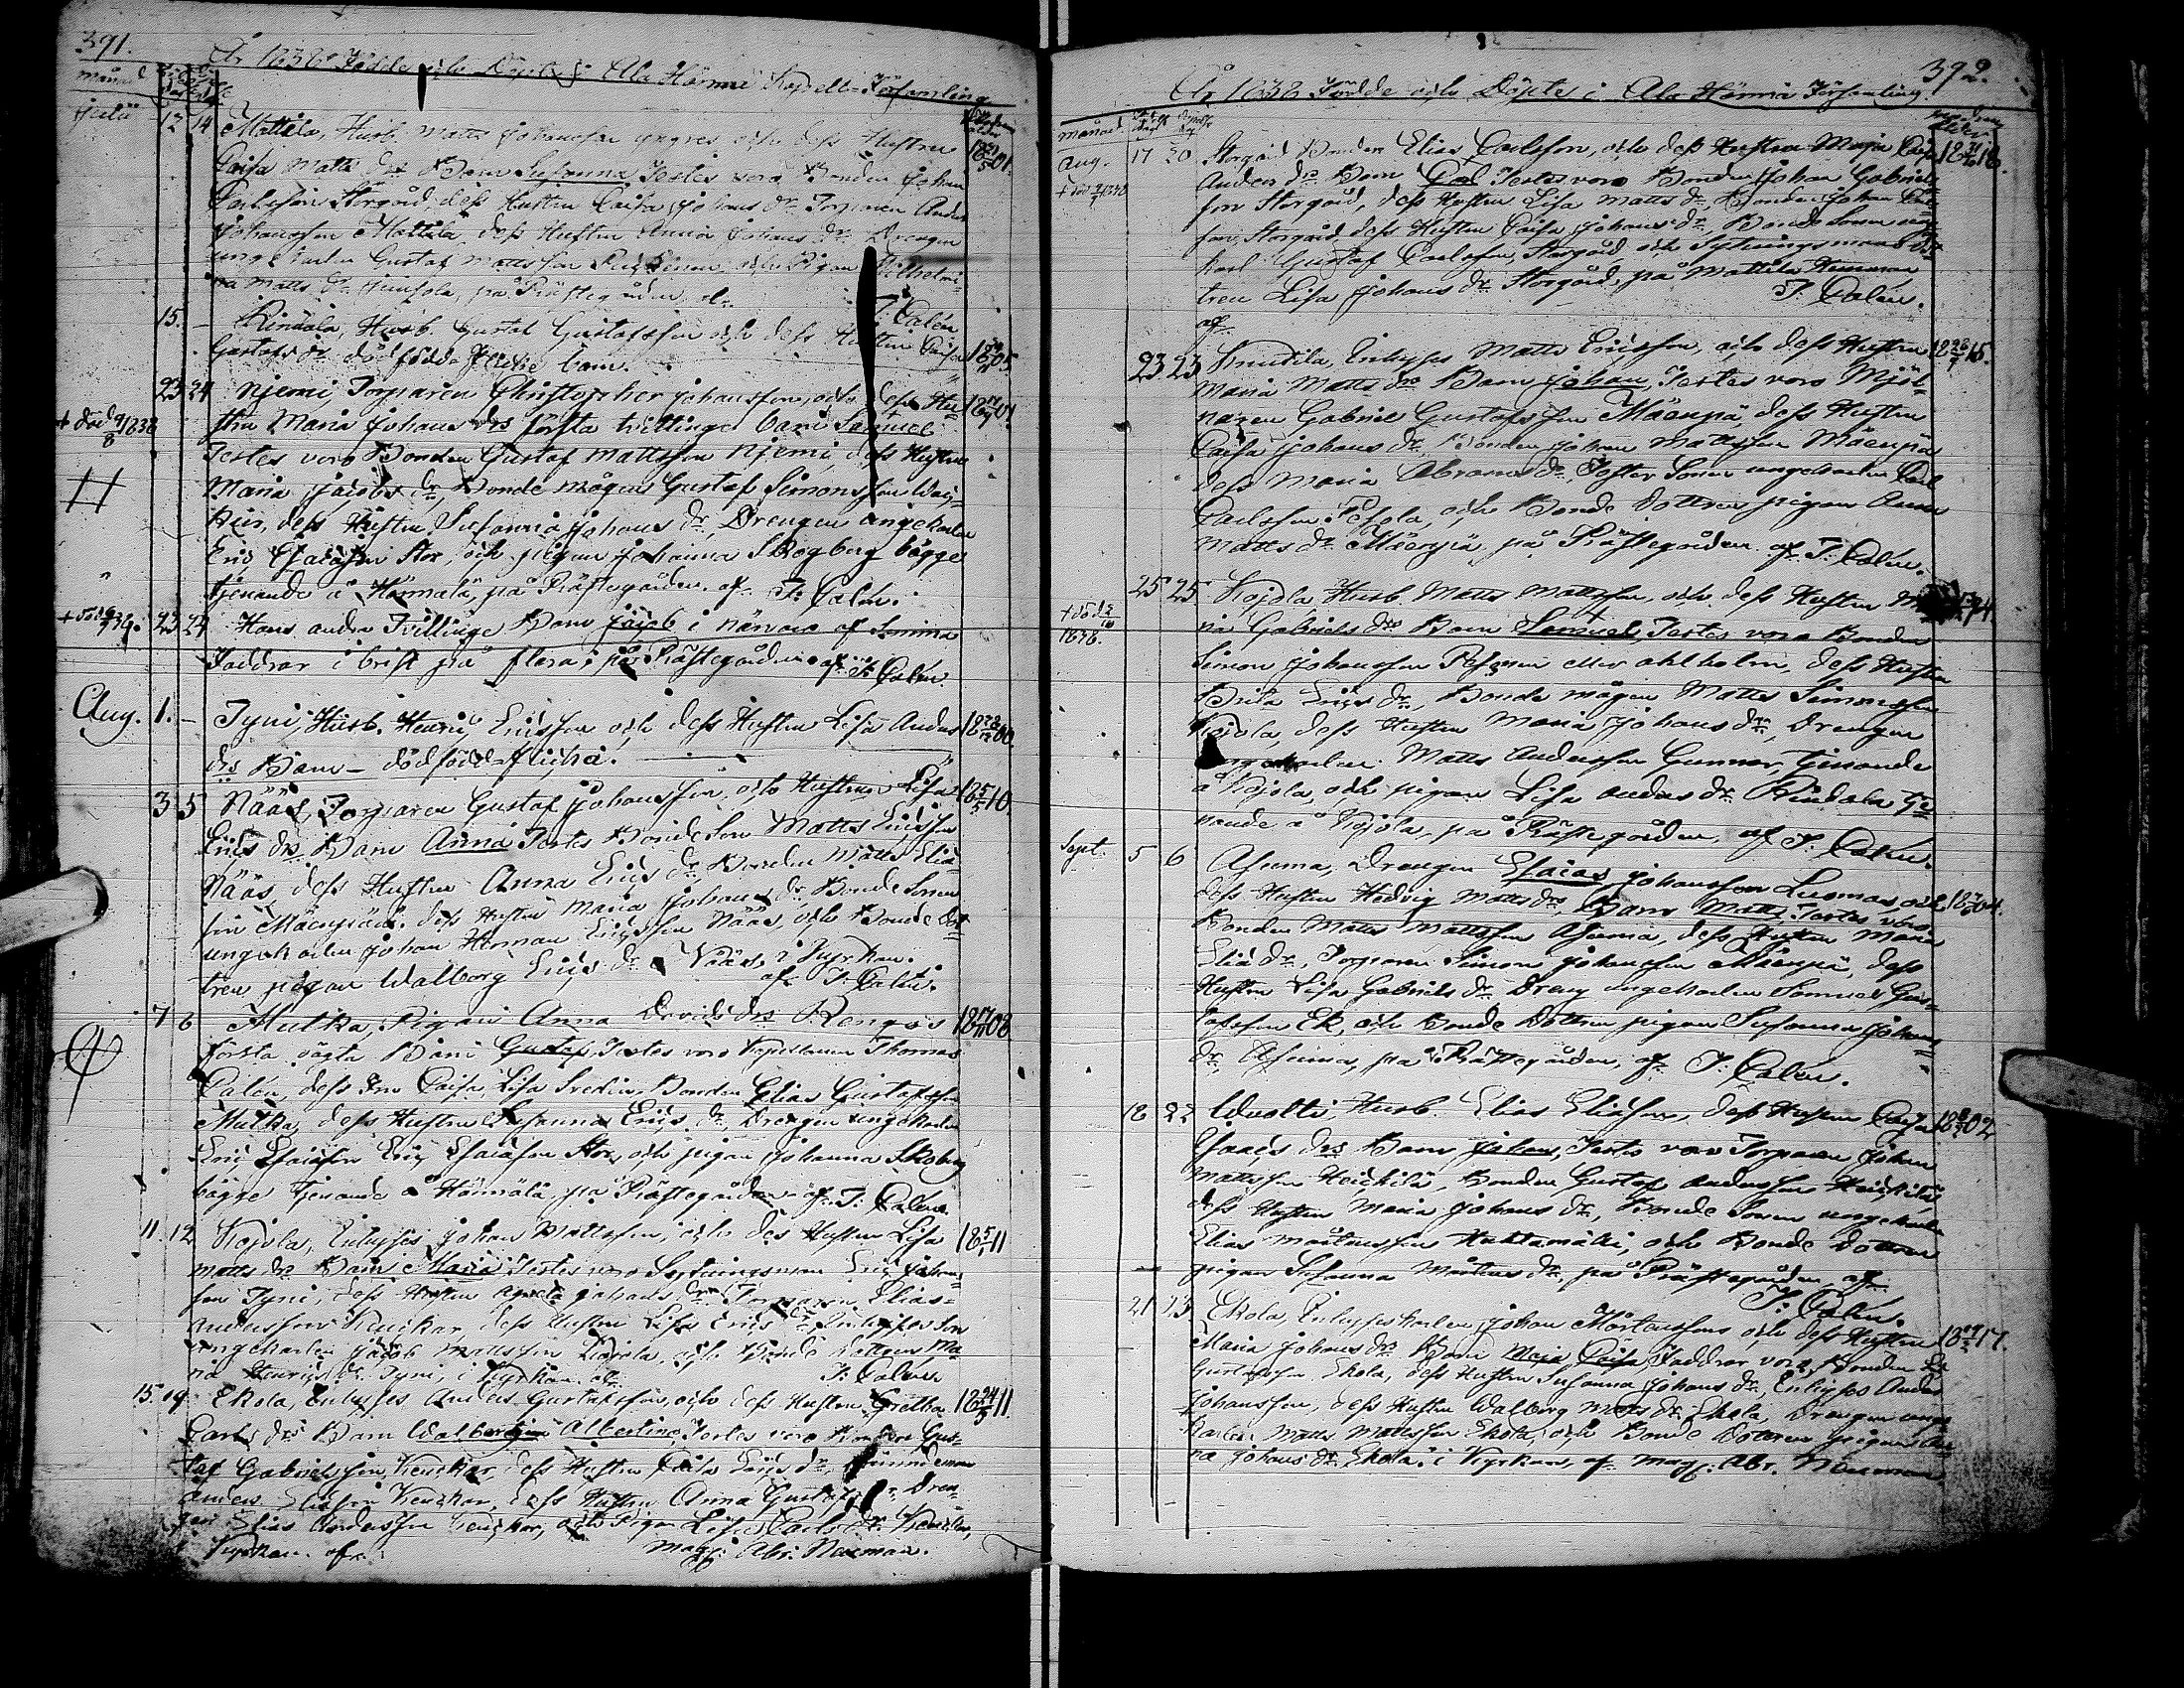 391.
År 1838 Födde och Döpte i Ala Härmä Kapell-Församling
månad
Julii 12 14 Mattila, Husb. Matts Johansson yngres och dess Hustru
Caisa Matts dr Barn Susanna Testes voro Bonden Johan
Carlsson Storgård, dess Hustru Caisa Johans dr Torparen Anders
Johansson Mattila dess Hustru Anna Johans dr Drengen
ungkarlen Gustaf Mattsson och Pigan Wilhelmi-
na Matts dr på Prästegården af
J. Calén
15. – Rindala, Husb. Gustaf Gustafsson och dess Hustru Caisa
Gustafs dr dödfödda barn.
23 24 Njemi, Torparen Christopher Johansson, och dess Hu-
+ död 9/8 1838 stru Maria Johans drs första tvillinge barn Samuel
Testes voro Bonden Gustaf Mattsson Njemi, dess Hustru
Maria Jacobs dr, Bonde mågen Gustaf Simonsson
dess Hustru Susanna Johans dr, Drengen ungkarlen
Eric Esaiasson Stor, och pigan Johanna Skogberg bägge
tjenande å Härmälä, på Prästegården af J. Calén.
23 24 Hans andra Tvillinge Barn Jacob i närvaro af samma
Faddrar i brist på flera; på Prästegården af J. Calén
Aug. 1. – Tyni, Husb. Henric Ericsson och dess Hustru Lisa Anders 18 00.
drs Barn – dödfödd flicka.
3 5 Nääs, Torparen Gustaf Johansson, och Hustrun Lisa 18 10.
Erics drs Barn Anna Testes Bonde Son Matts Ericsson
Nääs, dess Hustru Anna Erics dr, Bonden Matts Elias-
son Mäenpää, dess Hustru Maria Johans dr Bonde Sonen
ungkarlen Johan Herman Ericsson Nääs, och Bonde dot-
tren pigan Walborg Erics dr Nääs, i Kyrkan.
af J. Calén.
7 8 Mutka, Pigan Anna Davids drs Rengos 18 08
första oägta Barn Gustaf, Testes voro Capellanen Thomas
Calén, dess Fru Caisa Lisa Svedin, Bonden Elias Gustafsson
Mutka, dess Hustru Susanna Erics dr, Drengen ungkarlen
Eric Esaiasson Eric Esaiasson Stor, och pigan Johanna Skoberg
bägge tjenande å Härmälä, på Prästegården af J. Calén.
11. 12 Kojola, Inhyses Johan Mattsson, och des Hustru Lisa 18 11
Matts drs Barn Maria Testes voro Sytningsman Eric Johans-
son Tyni, dess Hustru Agneta Johans dr Torparen Elias
Andersson Keuckar, dess Hustru Lisa Erics dr Inhyses Son
ungkarlen Jacob Mattsson Kojola, och Bonde dottren Ma-
ria Henrics dr Tyni, i Kyrkan af J. Calén.
15. 19 Ekola, Inhyses Anders Gustafsson, och dess Hustru Gretha 18 24/5 11.
Carls drs Barn Walbergina Albertina, Testes voro Bonden Gus-
taf Gabrielsson Keuckar, dess Hustru Caisa Erics dr, Nämndeman
Anders Eliasson Keuckar, dess Hustru Anna Gustafs dr, Dren-
gen Elias Andersson Keuckar, och Pigan Lisa Carls dr Keuckar,
i Kyrkan af Mag. Abr. Neuman.
392.
År 1838 Födde och Döpte i Ala Härmä Församling
månad
Aug. 17 20 Storgård Bonden Elias Carlsson, och dess Hustru Maja Caisa 18 18.
Anders drs Barn Carl Testes voro Bonden Johan Gabriels-
son Storgård, dess Hustru Lisa Matts dr, Bonden Johan Carls-
son, Storgård dess Hustru Caisa Johans dr, Bonde Sonen ung-
karl Gustaf Carlsson, Storgård, och Sytningsmans dot-
tren Lisa Johans dr Storgård, på Mattila Hemman
af J. Calén.
23 23 Knutila, Inhyses Matts Ericsson, och dess Hustru 18 15.
Maria Matts drs Barn Johan, Testes voro Mjöl-
naren Gabriel Gustafsson Mäenpä, dess Hustru
Caisa Johans dr, Bonden Johan Mattsson Mäenpä
dess Maria Abrams dr, Foster Sonen ungkarlen Carl
Carlsson Pesola, och Bonde Dottren pigan Anna
Matts dr Mäenpä, på Prästegården af J. Calén.
25 25 Kojola Husb. Matts Mattsson, och dess Hustru Ma-
1838. ria Gabriels drs Barn Samuel, Testes voro Bonden
Simon Johansson Pesonen eller Ahlholm, dess Hustru
Brita Erics dr, Bonde mågen Matts Simonsson
Kojola, dess Hustru Maria Johans dr, Drengen
ungkarlen Matts Andersson Gunnar, tjenande
å Kojola, och pigan Lisa Anders dr Rindala tje-
nande å Kojola, på Prästegården, af J. Calén.
Sept. 5 6 Asuma, Drengen Esaias Johansson Luomas och 18 04.
dess Hustru Hedvig Matts drs, Barn Matts Testes voro
Bonden Matts Mattsson Asuma, dess Hustru Maria
Elia dr, Torparen Simon Johansson Mäenpä, dess
Hustru Lisa Gabriels dr Dreng ungkarlen Samuel Gus-
tafsson Ek, och Bonde Dottren pigan Susanna Johans
dr, Asuma, på Prästegården, af J. Calén.
18 22 Wuolti, Husb. Elias Eliasson, dess Hustru Caisa 18 02
Isaacs drs Barn Johan, Testes voro Torparen Johan
Mattsson Heickilä, Bonden Gustaf Andersson Heickilä,
dess Hustru Maria Johans dr, Bonde Sonen ungkarlen
Elias Mårtensson Huhtamäki, och Bonde Dottren
pigan Susanna Mårtens dr, på Prästegården, af
J. Calén.
21 23 Ekola, Inhyseskarlen Johan Mårtensson och dess Hustru 18 17.
Maria Johans drs Barn Maja Caisa Faddrar voro Bonden
Gustafsson Ekola, dess Hustru Susanna Johans dr, Inhyses Anders
Johansson, dess Hustru Walborg Matts dr Ekola, Drengen ung-
karlen Matts Mattsson Ekola, och Bonde Dottren pigan An-
na Johans dr Ekola, i Kyrkan, af Mag. Abr. Neuman